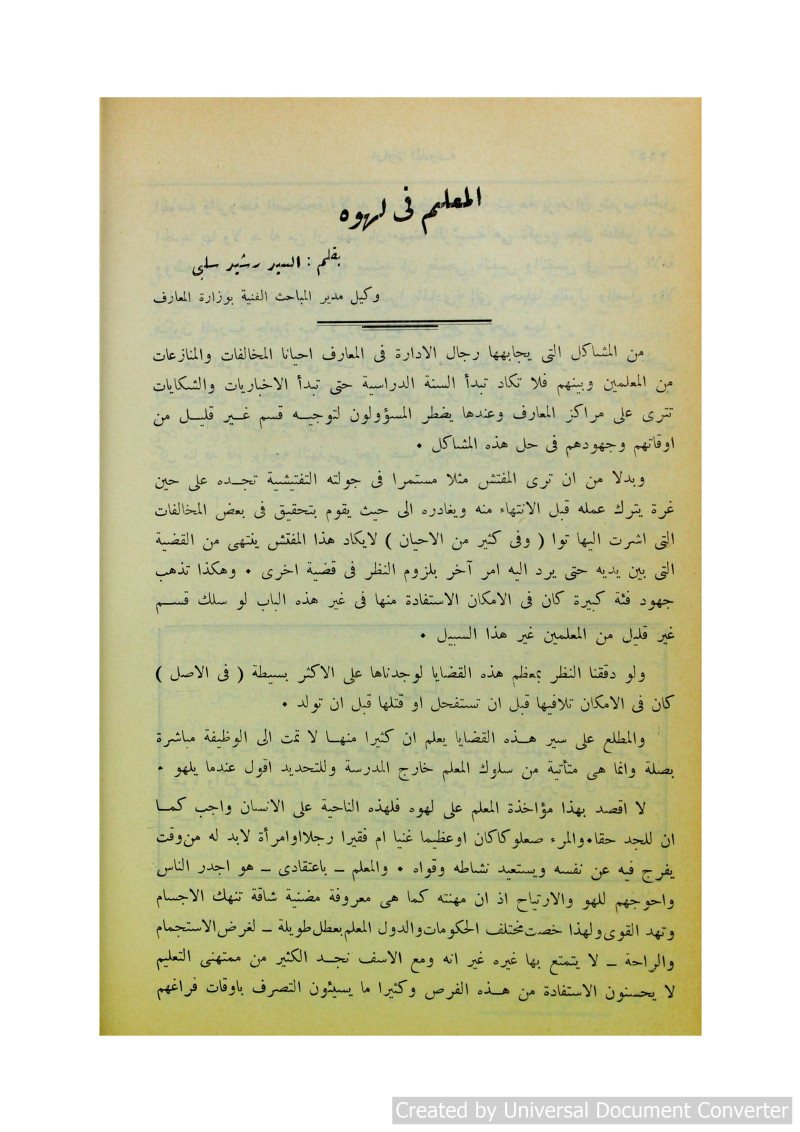 المعلم فى لهوه
بقلم : السيد رشيد سلبى
وكيل مدير المباحث الفنية بوزارة المعارف
من المشاكل التى يجابهها رجال الادارة فى المعارف احيانا المخالفات والمنازعات
من المعلمين وبينهم فلا تكاد تبدأ السنة الدراسية حتى تبدأ الاخباريات والشكايات
تترى على مراكز المعارف وعندها يضطر المسؤولون لتوجيه قسم غير قليل من
اوقاتهم وجهودهم فى حل هذه المشاكل .
وبدلا من ان ترى المفتش مثلا مستمرا فى جولته التفتيشية تجده على حين
غرة يترك عمله قبل الانتهاء منه ويغادره الى حيث يقوم بتحقيق فى بعض المخالفات
التى اشرت اليها توا ( وفى كثير من الاحيان ) لايكاد هذا المفتش ينتهى من القضية
التى بين يديه حتى يرد اليه امر آخر بلزوم النظر فى قضية اخرى . وهكذا تذهب
جهود فئة كبيرة كان فى الامكان الاستفادة منها فى غير هذه الباب لو سلك قسم
غير قليل من المعلمين غير هذا السبيل .
ولو دققنا النظر بمعظم هذه القضايا لوجدناها على الاكثر بسيطة ( فى الاصل )
كان فى الامكان تلافيها قبل ان تستفحل او قتلها قبل ان تولد .
والمطلع على سير هذه القضايا يعلم ان كثيرا منها لا تمت الى الوظيفة مباشرة
بصلة وانما هى متأتية من سلوك المعلم خارج المدرسة وللتحديد اقول عندما يلهو .
لا اقصد بهذا مؤاخذة المعلم على لهوه فلهذه الناحية على الانسان واجب كما
ان للجد حقا.والمرء صعلوكاكان اوعظيما غنيا ام فقيرا رجلااوامرأة لابد له من وقت
يفرج فيه عن نفسه ويستعيد نشاطه وقواه . والمعلم – باعتقادى – هو اجدر الناس
واحوجهم للهو والارتياح اذ ان مهنته كما هى معروفة مضنية شاقة تنهك الاجسام
وتهد القوى ولهذا خصت مختلف الحكومات والدول المعلم بعطل طويلة – لغرض الاستجمام
والراحة – لا يتمتع بها غيره غير انه ومع الاسف نجد الكثير من ممتهنى التعليم
لا يحسنون الاستفادة من هذه الفرص وكثيرا ما يسيئون التصرف باوقات فراغهم
Created by Universal Document Converter